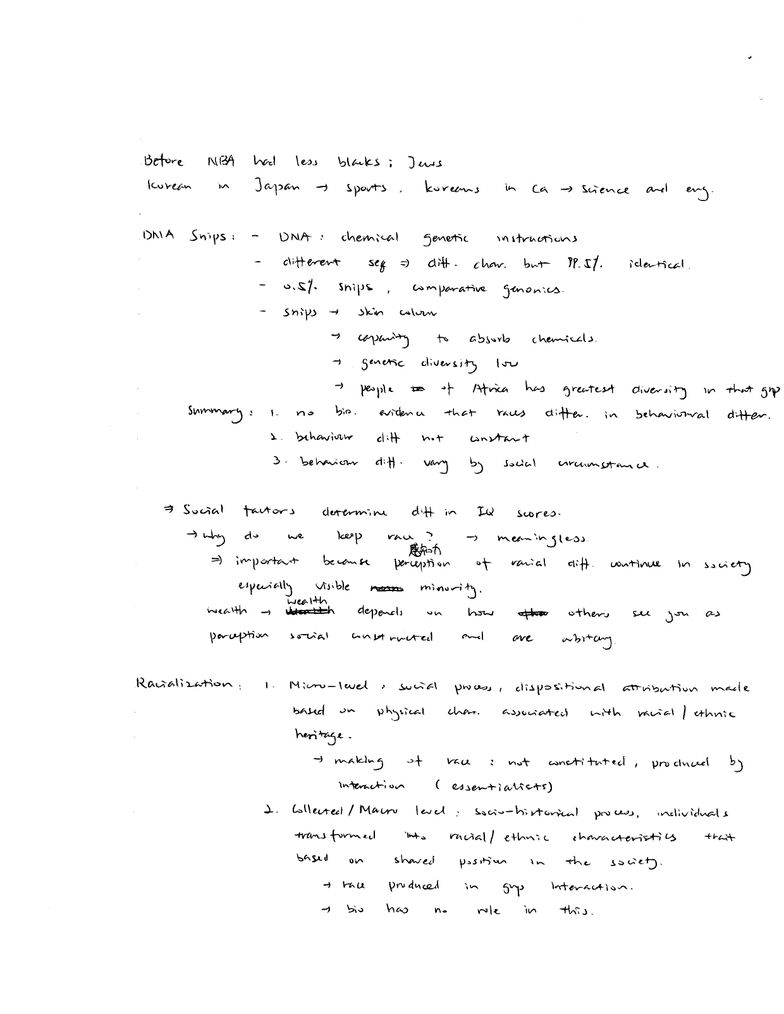 Before NBA had less blacks; Jews
Korean in Japan → sports, Koreans in Ca → science and eng.
DNA Snips: - DNA: chemical genetic instructions
- different seq ⇒ diff. char. but 99.5% identical
- 0.5% snips, comparative genomics.
- snips → skin colour
→ capacity to absorb chemicals.
→ genetic diversity low
→ people of Africa has greatest diversity in that grp
Summary: 1. no bio. evidence that races differ. in behavioural differ.
2. behaviour diff not constant
3. behaviour diff. vary by social circumstance.
⇒ Social factors determine diff in IQ scores.
→ why do we keep race? → meaningless
感知力
⇒ important because perception of racial diff. continue in society
especially visible minority.
wealth
wealth → depends on how others see you as
perception social constructed and are arbitary.
Racialization: 1. Micro-level, social process, dispositional attribution made
based on physical char. associated with racial/ethnic
heritage.
→ making of race: not constituted, produced by
interaction (essentialists)
2. Collected/Macro level: socio-historical process, individuals
transformed into racial/ethnic characteristics trait
based on shared position in the society.
→ race produced in grp interaction.
→ bio has no role in this.